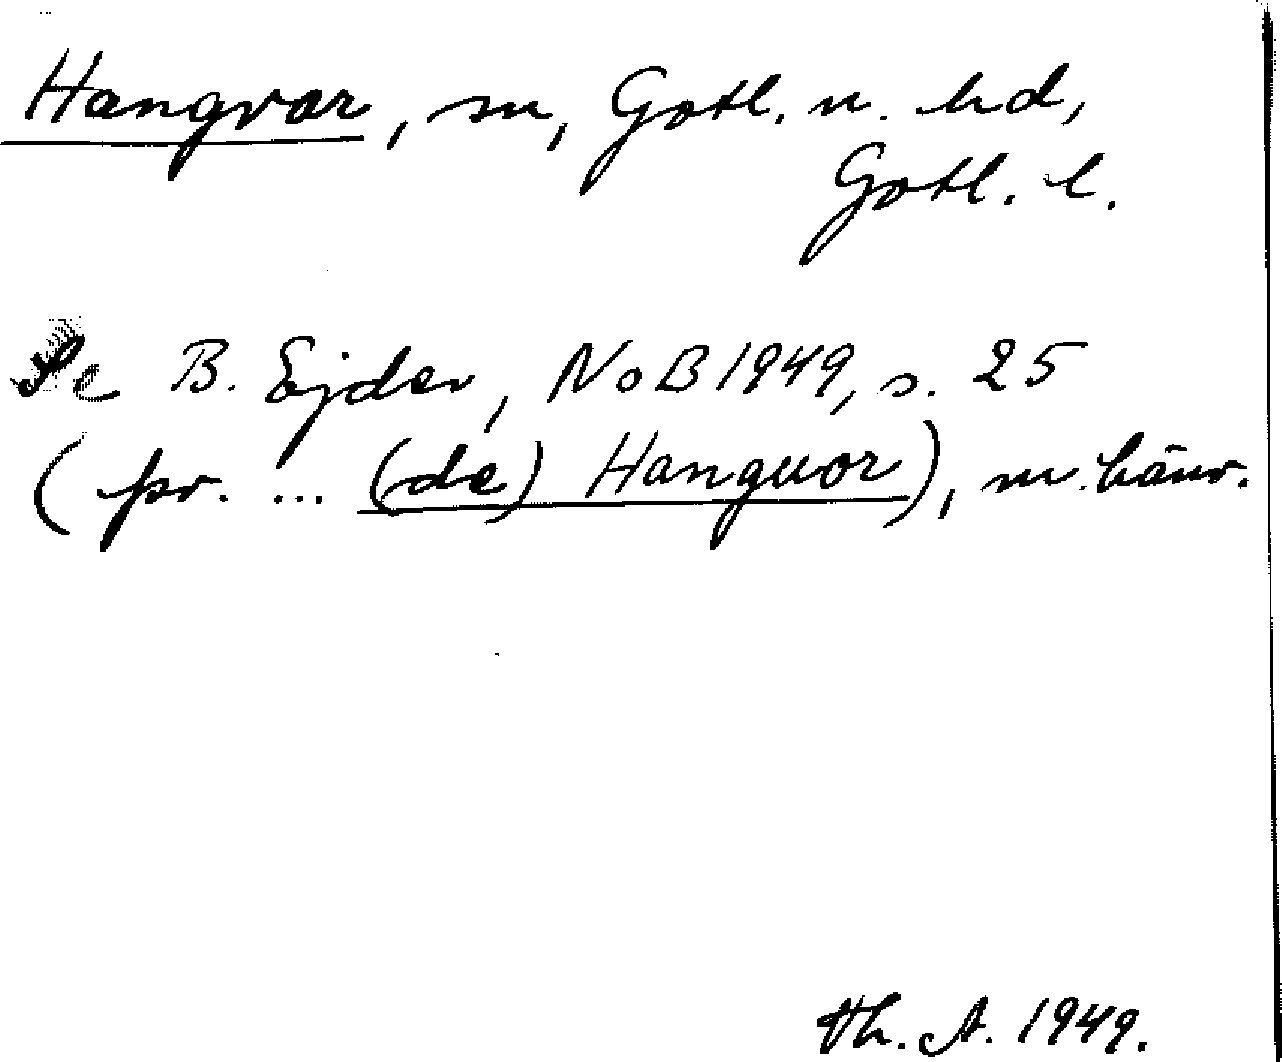 Hangvar, sn, Gotl. n. hd,
Gotl. l.
Se B. Ejder, NoB 1949, s. 25
(pr. ... (de) Hanguor), m. hänv.
Th. A. 1949.